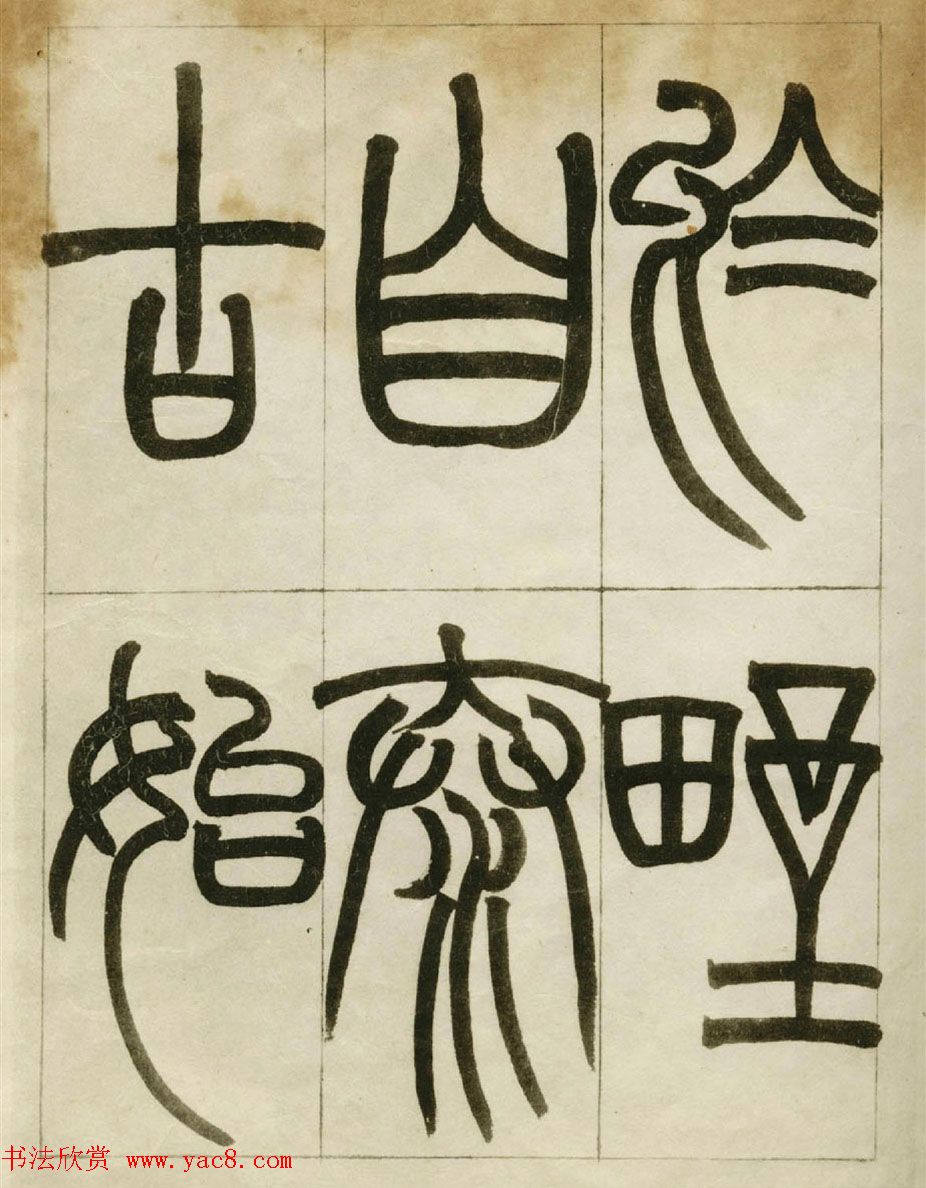 於野
自泰
古始
书法欣赏 www.yac8.com